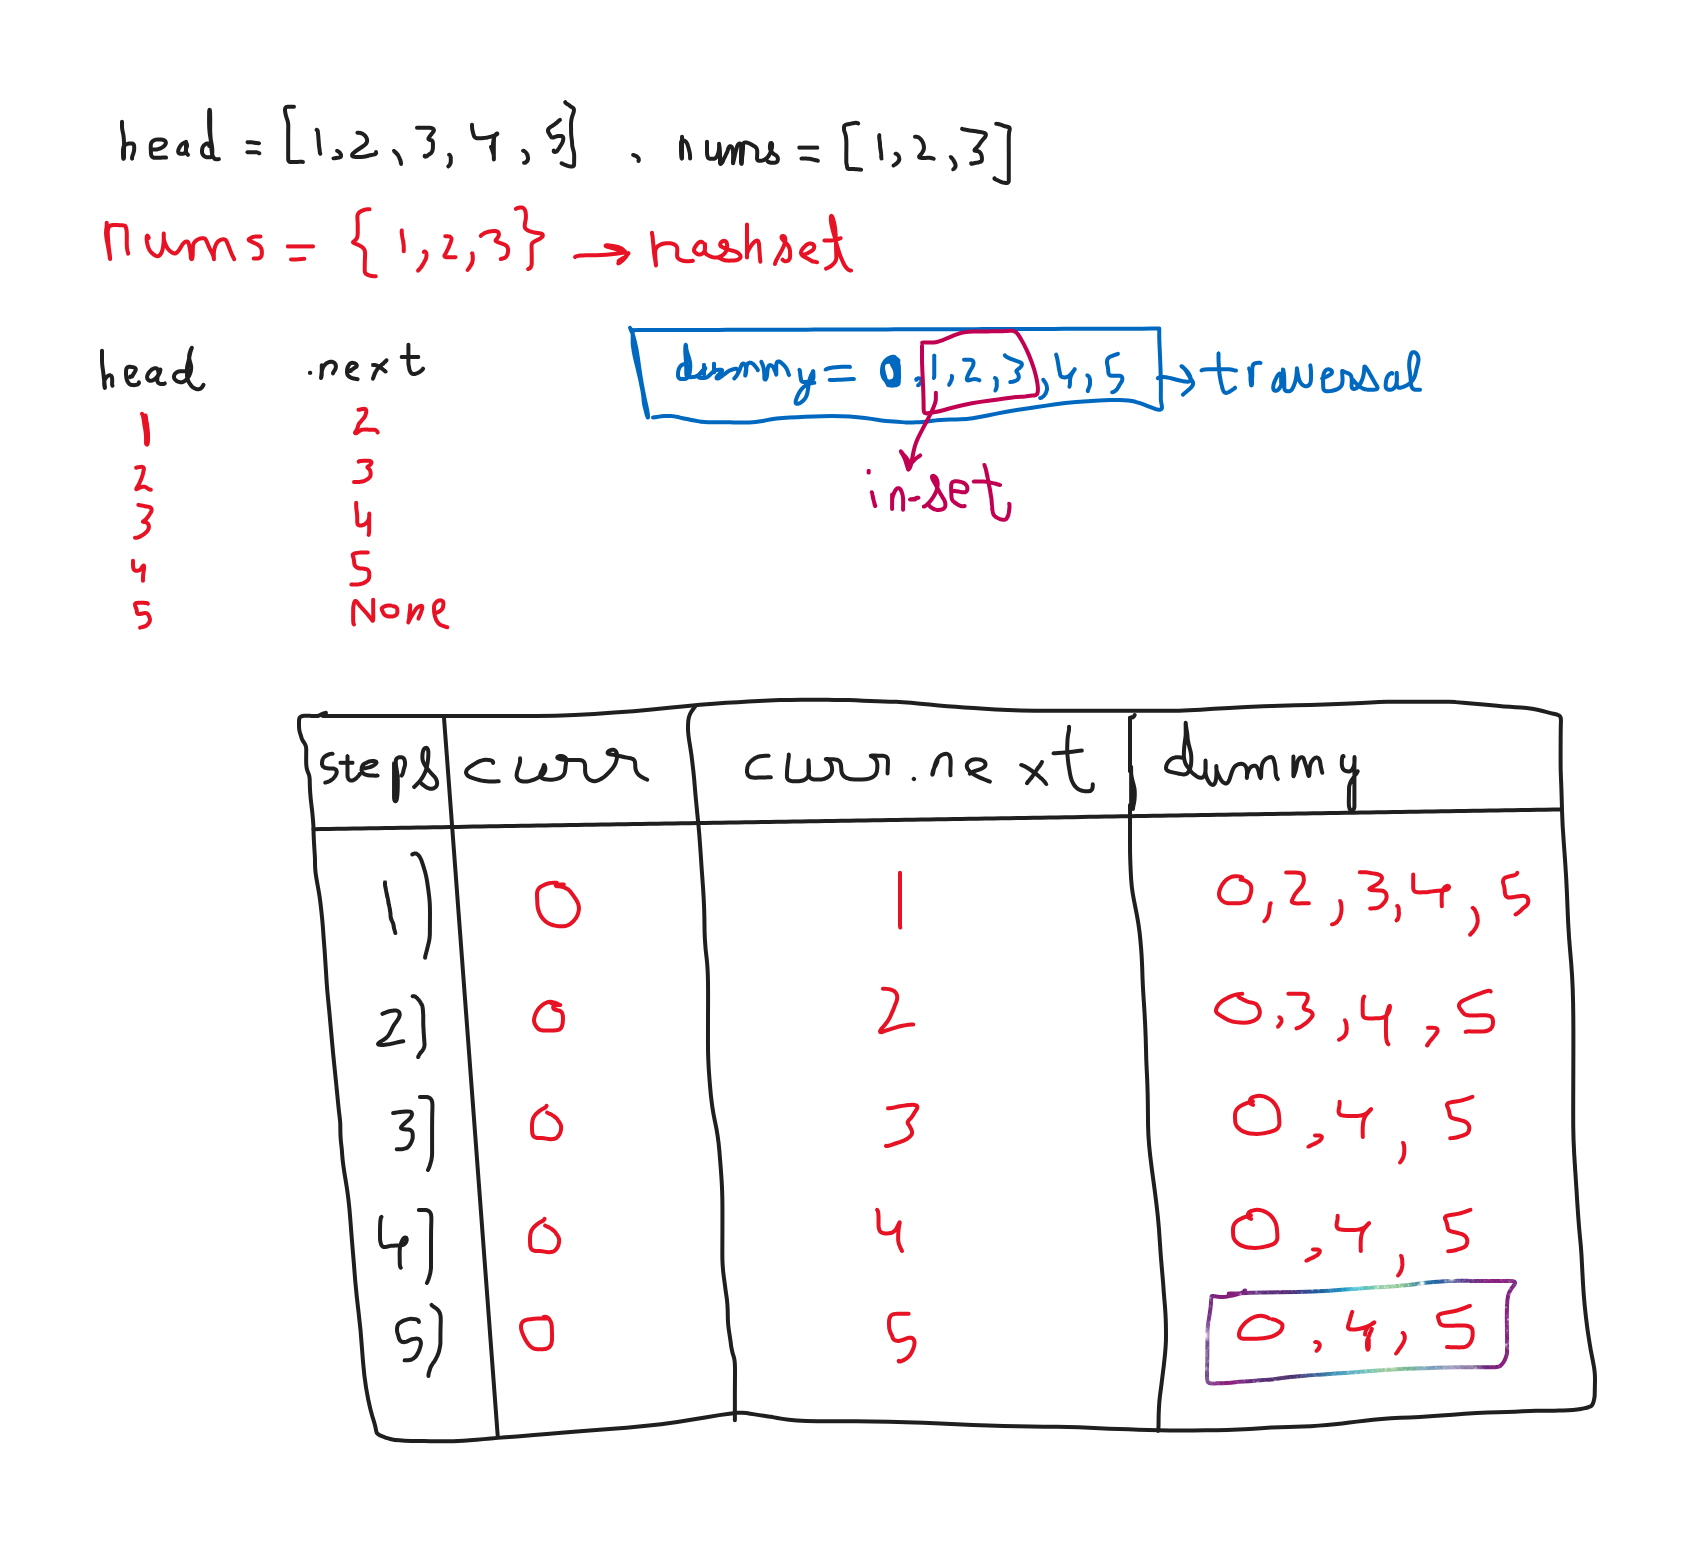 head = [1,2,3,4,5] , nums = [1,2,3]
nums = {1,2,3} → hashset
head .next
1 2
2 3
3 4
4 5
5 None
dummy = 0,1,2,3,4,5 → traversal
in-set
steps curr curr.next dummy
1) 0 1 0,2,3,4,5
2) 0 2 0,3,4,5
3] 0 3 0,4,5
4] 0 4 0,4,5
5) 0 5 0,4,5